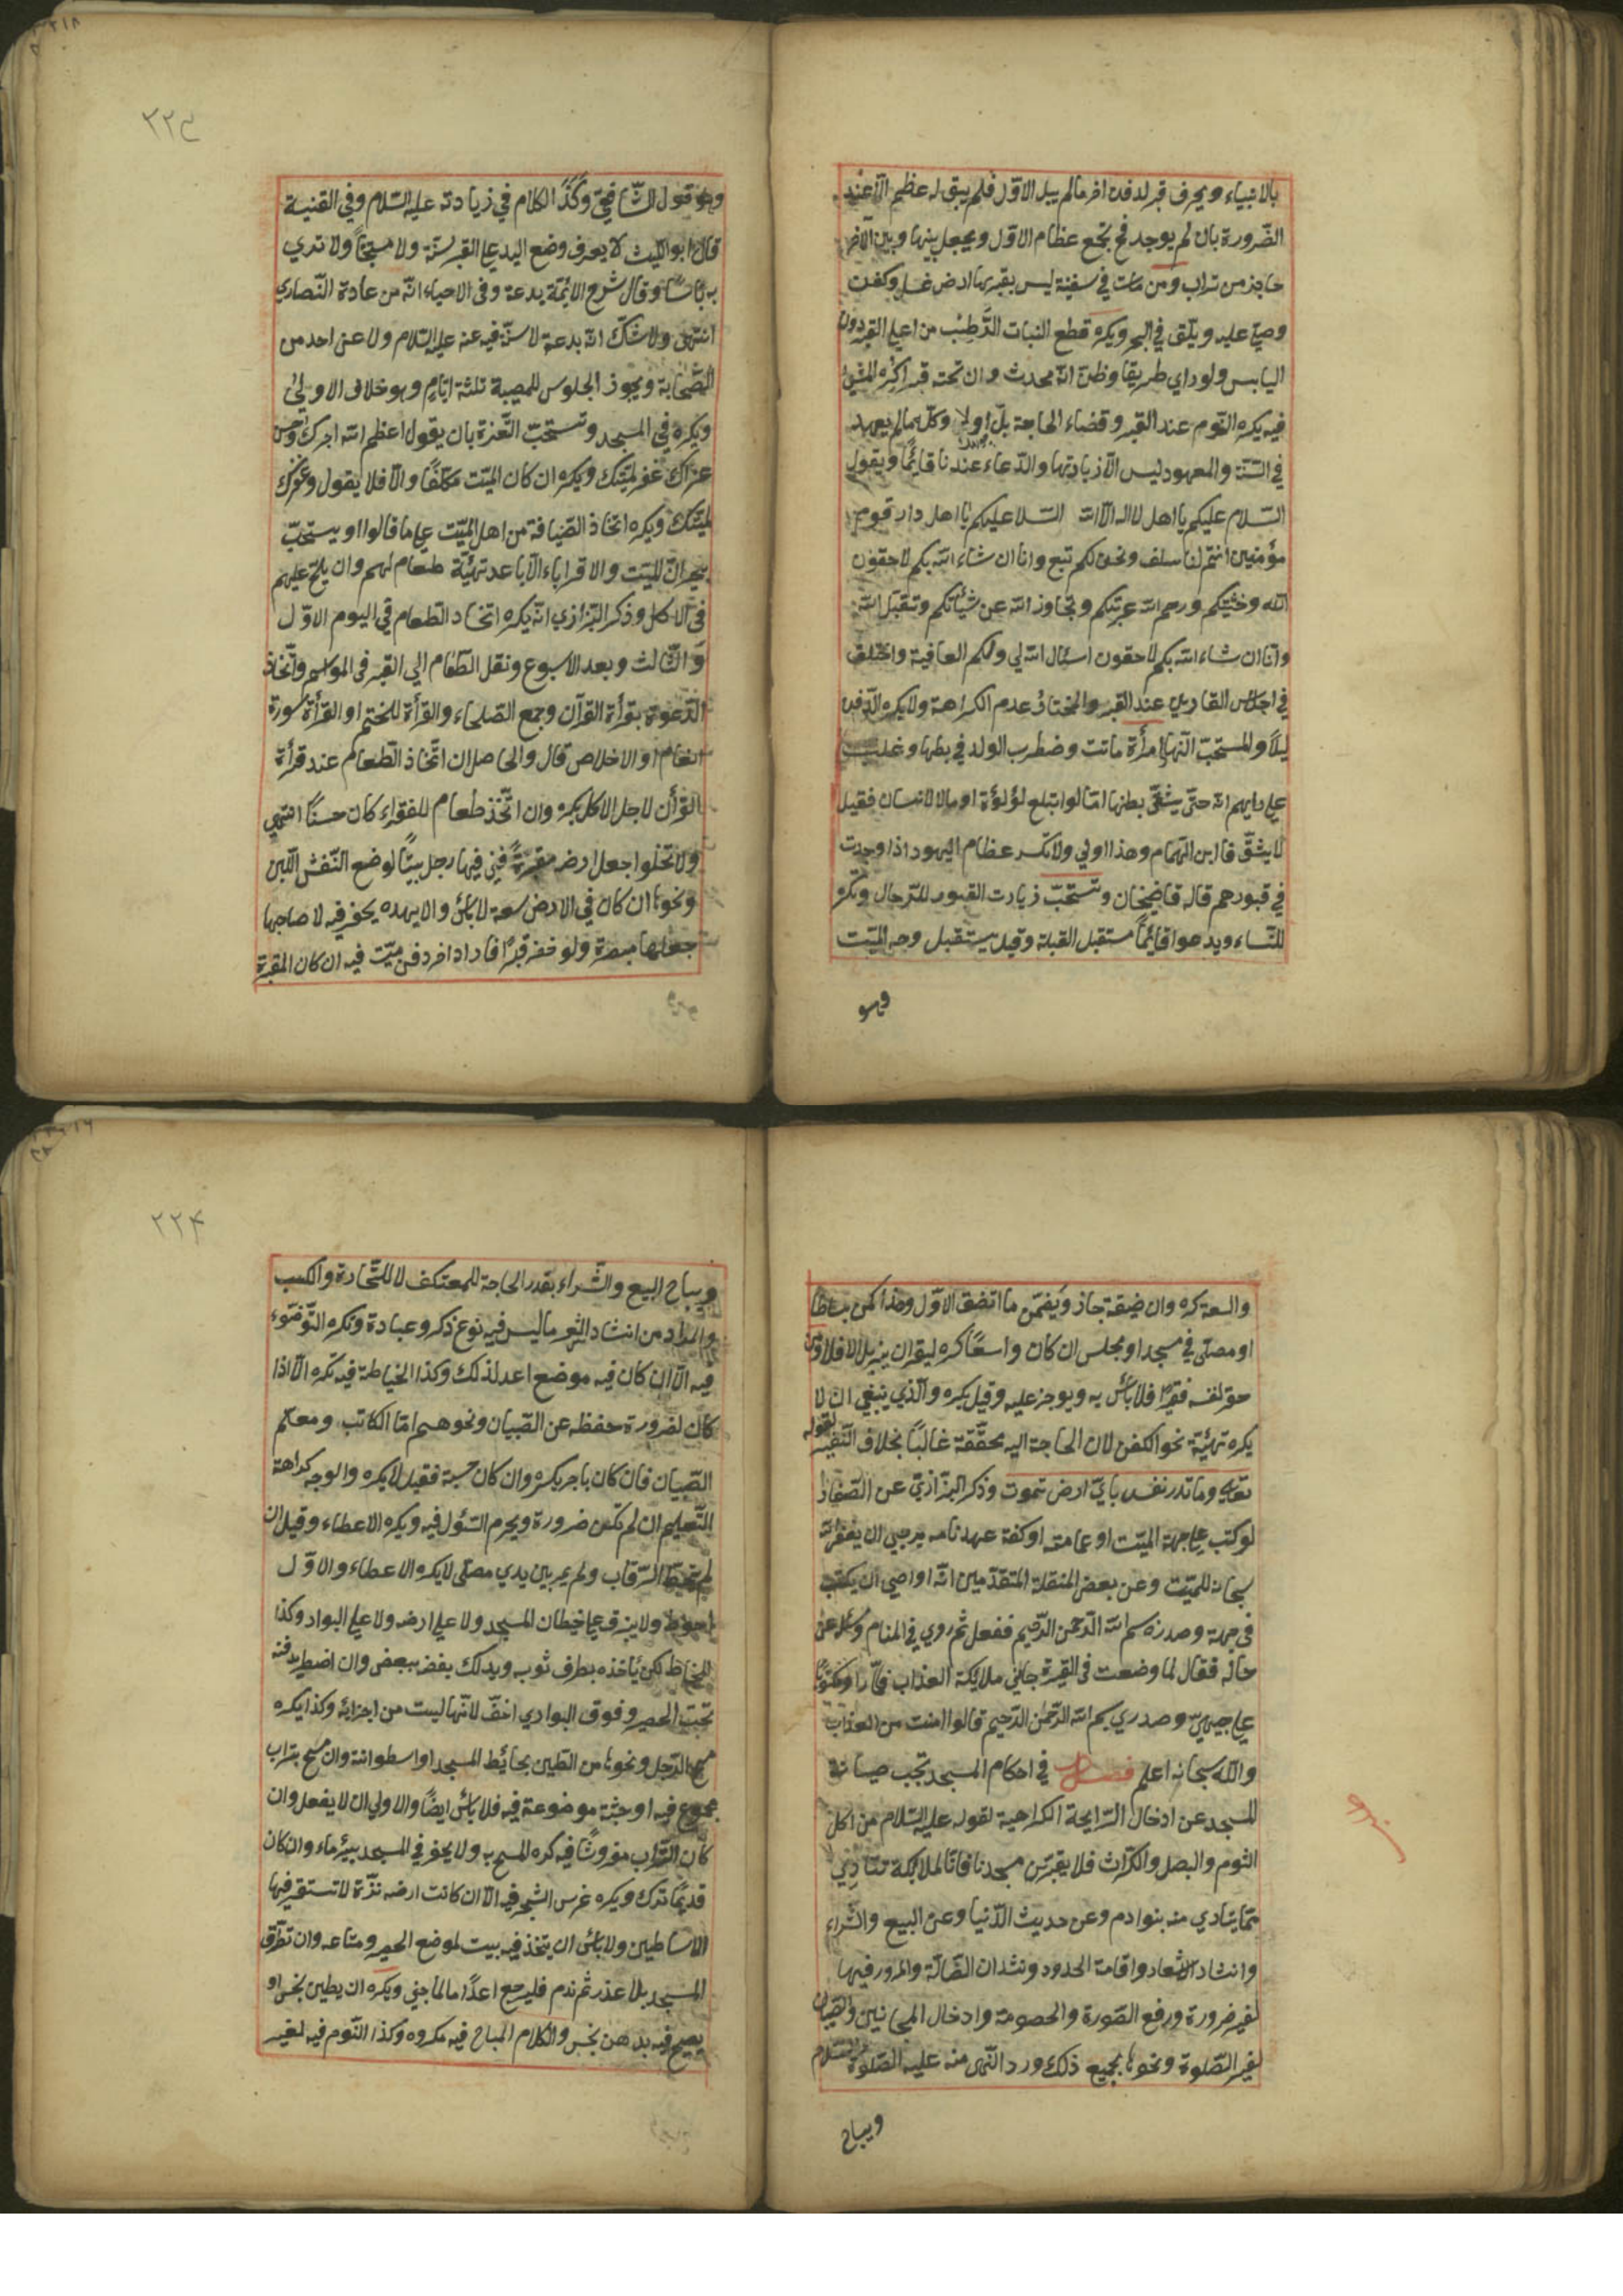 بالانبياء ويحرف قبر لدفن اخر مالم يبل الاوّل فلم يبق له عظم الّا عند
الضّرورة بان لم يوجد فح يجمع عظام الاوّل ويجعل بينها وبين الآخر
حاجز من تراب ومن مات في سفينة ليس بقربها ارض غسل وكفن
وصلّي عليه ويلقى في البحر ويكره قطع النبات الرَّطِب من اعلي القبر دون
اليابس ولو راي طريقا وظنّ انّه محدث وان تحته قبر اكره المشي
فيه يكره النّوم عند القبر وقضاء الحاجة بل اولا وكلّ مالم يعهد
في السّنّة والمعهود ليس الّا زيادتها والدّعاء عندنا قائمًا ويقول
السّلام عليكم يا اهل لا اله الّا الله السّلا عليكم يا اهل دار قوم
مؤمنين انتم لنا سلف ونحن لكم تبع وانا ان شاء الله بكم لاحقون
الله وحشتكم ورحم الله غربتكم وتجاوز الله عن سيّأتكم وتقبّل الله
وانّا ان شاء الله بكم لاحقون اسئال الله لي ولكم العافية واختلف
في اجلاس القارئ عند القبر والمختار عدم الكراهة ولا يكره الدّفن
ليلاً والمستحبّ النّهار امرأة ماتت وضطرب الولد في بطنها وغلب
علي رايهم انّه حيّ يشقّ بطنها امّا لو ابتلع لؤلؤة او مالا لانسان فقيل
لا يشقّ قا ابن الهمام وهذا اولي ولا تكسر عظام اليهود اذا وجدت
في قبورهم قاله قاضيخان وتستحبّ زيارت القبور للرّجال وتكره
للنّساء ويدعوا قائماً مستقبل القبلة وقيل يستقبل وجه الميّت
وهو
٢٢٣
وهو قول الشّافعيّ وكَذَا الكلام في زيارته عليه السّلام وفي القنية
قال ابو اللّيث لا يعرف وضع اليد علي القبر سنّة ولا مستحبًّا ولا نري
به باسًا وقال شرح الائمّة بدعة وفى الاحياء انّه من عادة النّصاري
انتهى ولاشكّ انّه بدعة لا سنّة فيه عنه عليه السّلام ولا عن احد من
الصّحابة ويجوز الجلوس للمصيبة ثلثة ايّام وهو خلاف الاولى
ويكره في المسجد وتستحبّ التّعزية بان يقول اعظم الله اجرك واحسن
عزاك غفر لميّتك ويكره ان كان الميّت مكلّفًا والّا فلا يقول وغفر
لميّتك ويكره اتخاذ الضّيافة من اهل الميّت علي ما قالوا او يستحبّ
جيران الميّت والاقرباء الاباعد تهيئة طعام لهم وان يلحّ عليهم
فى الاكل وذكر البزازي انّه يكره اتخاد الطّعام في اليوم الاوّل
وَ الثّالث وبعد الاسبوع ونقل الطّعام الي القبر فى المواسم واتّخاذ
الدّعوة بقرأة القرآن وجمع الصّلحاء والقرأة للختم او القرأة سورة
انعام او الاخلاص قال والحاصل ان اتّخاذ الطّعام عند قرأة
القرأن لاجل الاكل يكره وان اتّخذ طعام للفقراء كان حسنًا انتهي
ولا تخلوا جعل ارضه مقبرةً فبني فيها رجل بيتًا لوضع النّعش اللّبن
ونحوها ان كان في الارض سعة لا باس والا يهده يحفر فيه لا صاحبها
جعلها مقبرة ولو حفر قبرًا فاراد اخر دفن ميّت فيه ان كان المقبرة
والسعة كره وان ضيقة جاز ويضمّن ما انفق الاوّل وهذا كمن بساطا
او مصلّى في مسجد او مجلس ان كان واسعًا كره ليقر ان يزيل الا فلا ومن
حفر لنفسه قبرًا فلا باس به ويوجر عليه وقيل يكره والّذي ينبغي ان لا
يكره تهيئة نحو الكفن لان الحاجة اليه محقّقة غالبًا بخلاف القبر لقوله
تعالي وما تدر نفس بايّ ارض تموت وذكر البزّازيّ عن الصّفار
لو كتب علي جبهة الميّت او عمامته او كفنه عهد نامه يرجي ان يغفر الله
سبحانه للميّت وعن بعض المتقدّمين انّه اواصي ان يكتب
في جبهته وصدره بسم الله الرّحمن الرّحيم ففعل ثمّ روي في المنام وسئل عن
حاله فقال لما وضعت في القبر جائني ملايكة العذاب فلمّا راو مكتوبًا
علي جبهتي وصدري بسم الله الرّحمن الرّحيم قالوا امنت من العذاب
والله سبحانه اعلم فصل في احكام المسجد تجب صيانة
المسجد عن ادخال الرّايحة الكراهية لقوله عليه السّلام من اكل
الثوم والبصل والكرّاث فلا يقربّن مسجدنا فانّ الملائكة تتاذي
ممّا يتاذي منه بنو ادم وعن حديث الدّنيا وعن البيع والشّراء
وانشاد الاشعار واقامة الحدود ونشدان الضّالّة والمرور فيها
لغير ضرورة ورفع الصّورة والحصومة وادخال المجانين والصّبيان
لغير الصّلوة ونحوها بجميع ذلك ورد النّهى منه عليه الصّلوة والسّلام
ويباح
٢٢٤
ويباح البيع والشّراء بقدر الحاجة للمعتكف لا للتّجارة والكسب
والمراد من انشاد الشّعر ما ليس فيه نوع ذكر وعبادة وتكره التّوضّوء
فيه الّا ان كان فيه موضع اعد لذلك وكذا الخياطة فيه تكره الّا اذا
كان لضرورة حفظه عن الصّبيان ونحوهم امّا الكاتب ومعلّم
الصّبيان فان كان باجر يكره وان كان حسبة فقيل لا يكره والوجه كراهة
التّعليم ان لم تكن ضرورة ويحرم السّؤل فيه ويكره الاعطاء وقيل ان
لم يتخطّ الرّقاب ولم يمر بين يدي مصلّى لا يكره الاعطاء والاوّل
احوط ولا يبزق علي خيطان المسجد ولا علي ارضه ولا علي البواد وكذا
المخاط لكن يأخذه بطرف ثوبه ويدلك بعضه ببعض وان اضطر دفنه
تحت الحصر وفوق البوادي اخفّ لانّها ليست من اجزائه وكذا يكره
مسح الرّجل ونحوها من الطّين بحائيط المسجد او اسطوانة وان مسح بتراب
مجموع فيه او جثة موضوعة فيه فلا باس ايضًا والاولي ان لا يفعل وان
كان التّراب مفروشًا فيه كره المسح به ولا يحفر في المسجد بيرٔ ماء وان كان
قديمًا ترك ويكره غرس الشجر فيه الّا ان كانت ارضه نزّة لا تستقر فيها
الاساطين ولا باس ان يتخذ فيه بيت لموضع الحصر ومتاعه وان تطرّق
المسجد بلا عذر ثمّ ندم فليرجع اعدًاما لما جني ويكره ان يطين بنجس او
يصبح فيه بدهن نجس والكلام المباح فيه مكروه وكذا النّوم فيه لغير